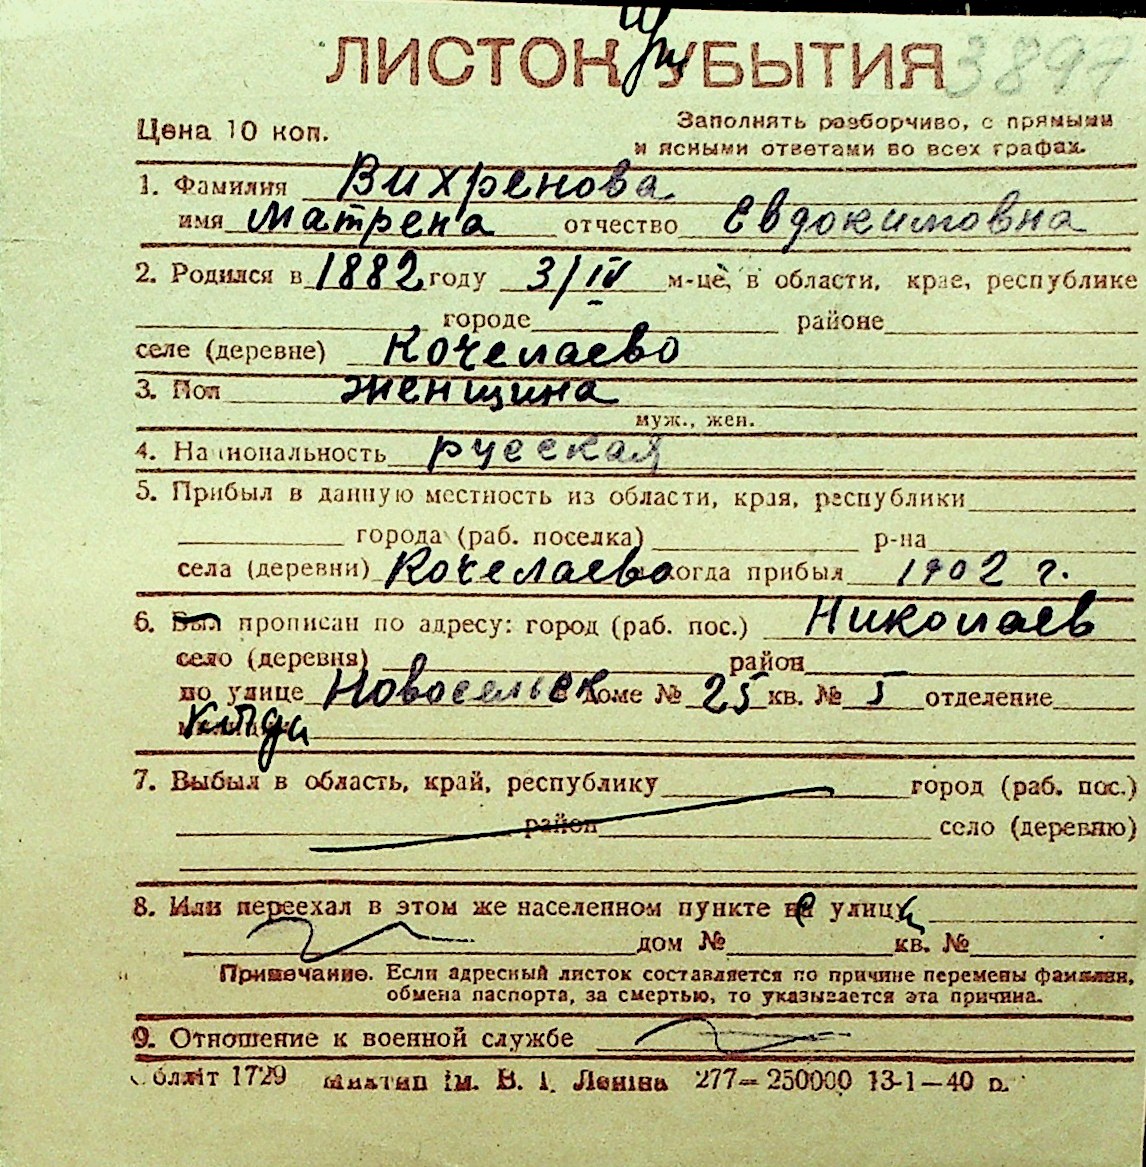 ЛИСТОК УБЫТИЯ 3897
Цена 10 коп.
Заполнять разборчиво, с прямыми
и ясными ответами во всех графах.
1. Фамилия Вихренова
имя Матрена отчество Евдокимовна
2. Родился в 1882 году 3/IV м-це, в области, крае, республике
городе районе
селе (деревне) Кочелаево
3. Пол женщина
муж., жен.
4. Национальность русская
5. Прибыл в данную местность из области, края, республики
города (раб. поселка) р-на
села (деревни) Кочелаево когда прибыл 1902 г.
6. Был прописан по адресу: город (раб. пос.) Николаев
село (деревня) район
по улице Новосельск в доме № 25 кв. № 5 отделение
милиции
7. Выбыл в область, край, республику город (раб. пос.)
район село (деревню)
8. Или переехал в этом же населенном пункте на улицу
дом № кв. №
Примечание. Если адресный листок составляется по причине перемены фамилии,
обмена паспорта, за смертью, то указывается эта причина.
9. Отношение к военной службе
Обллiт 1729 Миктип iм. В. I. Ленiна 277—250000 13-1—40 р.